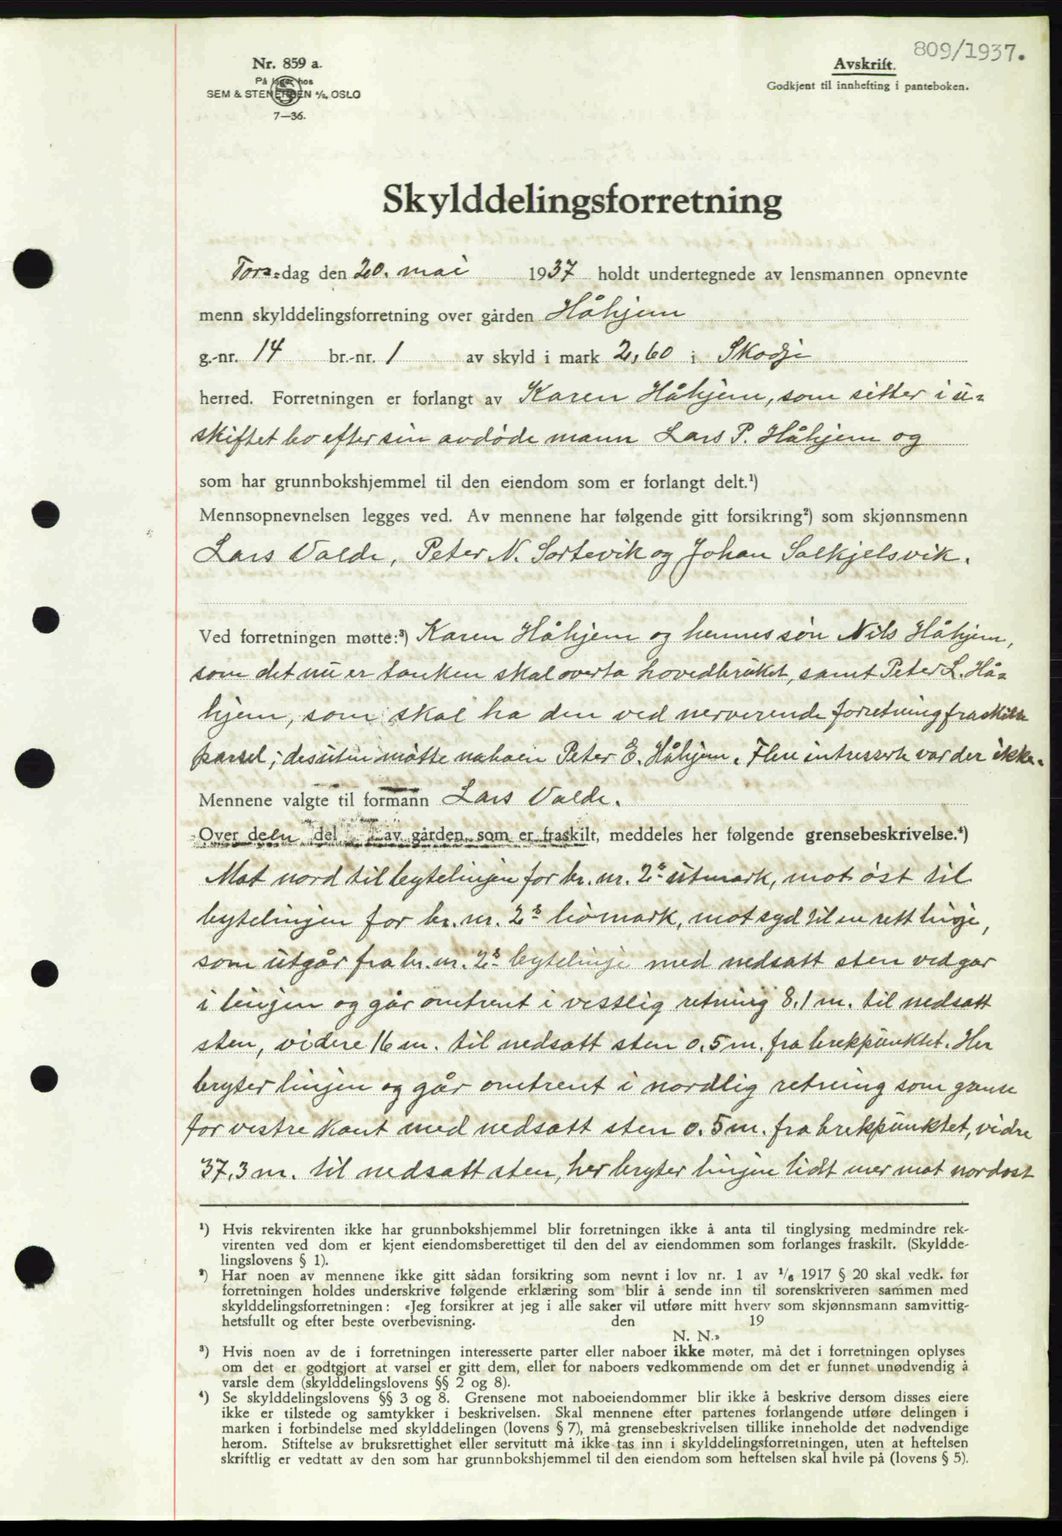 809/1937.
Nr. 859 a.
På lager hos
SEM & STENERSEN A/S, OSLO
7—36.
Avskrift.
Godkjent til innhefting i panteboken.
Skylddelingsforretning
Torsdag den 20. mai 1937 holdt undertegnede av lensmannen opnevnte
menn skylddelingsforretning over gården Håhjem
g.-nr. 14 br.-nr. 1 av skyld i mark 2,60 i Skodje
herred. Forretningen er forlangt av Karen Håhjem, som sitter i u-
skiftet bo efter sin avdøde mann Lars P. Håhjem og
som har grunnbokshjemmel til den eiendom som er forlangt delt.¹)
Mennsopnevnelsen legges ved. Av mennene har følgende gitt forsikring²) som skjønnsmenn
Lars Valde, Peter N. Sortevik og Johan Solkjelsvik.
Ved forretningen møtte:³) Karen Håhjem og hennes søn Nils Håhjem,
som det nu er tanken skal overta hovedbruket, samt Peter L. Hå-
hjem, som skal ha den ved nerverende forretning fraskilte
parsel; desuten møtte naboen Peter E. Håhjem. Flere intresserte var der ikke.
Mennene valgte til formann Lars Valde.
Over den del av gården, som er fraskilt, meddeles her følgende grensebeskrivelse.⁴)
Mot nord til bytelinjen for br. nr. 2s utmark, mot øst til
bytelinjen for br. nr. 2s hiømark, mot syd til en rett linje,
som utgår fra br. nr. 2s bytelinje med nedsatt sten ved gar
i linjen og går omtrent i vestlig retning 8,1 m. til nedsatt
sten, videre 16 m. til nedsatt sten 0.5 m. fra brekpunktet. Her
bryter linjen og går omtrent i nordlig retning som grense
for vestre kant med nedsatt sten 0.5 m. fra brekpunktet, vidre
37,3 m. til nedsatt sten, her bryter linjen lidt mer mot nordost
¹) Hvis rekvirenten ikke har grunnbokshjemmel blir forretningen ikke å anta til tinglysing medmindre rek-
virenten ved dom er kjent eiendomsberettiget til den del av eiendommen som forlanges fraskilt. (Skyldde-
lingslovens § 1).
²) Har noen av mennene ikke gitt sådan forsikring som nevnt i lov nr. 1 av 1/6 1917 § 20 skal vedk. før
forretningen holdes underskrive følgende erklæring som blir å sende inn til sorenskriveren sammen med
skylddelingsforretningen: «Jeg forsikrer at jeg i alle saker vil utføre mitt hverv som skjønnsmann samvittig-
hetsfullt og efter beste overbevisning. den 19
N. N.»
³) Hvis noen av de i forretningen interesserte parter eller naboer ikke møter, må det i forretningen oplyses
om det er godtgjort at varsel er gitt dem, eller for naboers vedkommende om det er funnet unødvendig å
varsle dem (skylddelingslovens §§ 2 og 8).
⁴) Se skylddelingslovens §§ 3 og 8. Grensene mot naboeiendommer blir ikke å beskrive dersom disses eiere
ikke er tilstede og samtykker i beskrivelsen. Skal mennene efter partenes forlangende utføre delingen i
marken i forbindelse med skylddelingen (lovens § 7), må grensebeskrivelsen tillike inneholde det nødvendige
herom. Stiftelse av bruksrettighet eller servitutt må ikke tas inn i skylddelingsforretningen, uten at heftelsen
skriftlig er vedtatt av den som har grunnbokshjemmel til den eiendom som heftelsen skal hvile på (lovens § 5).